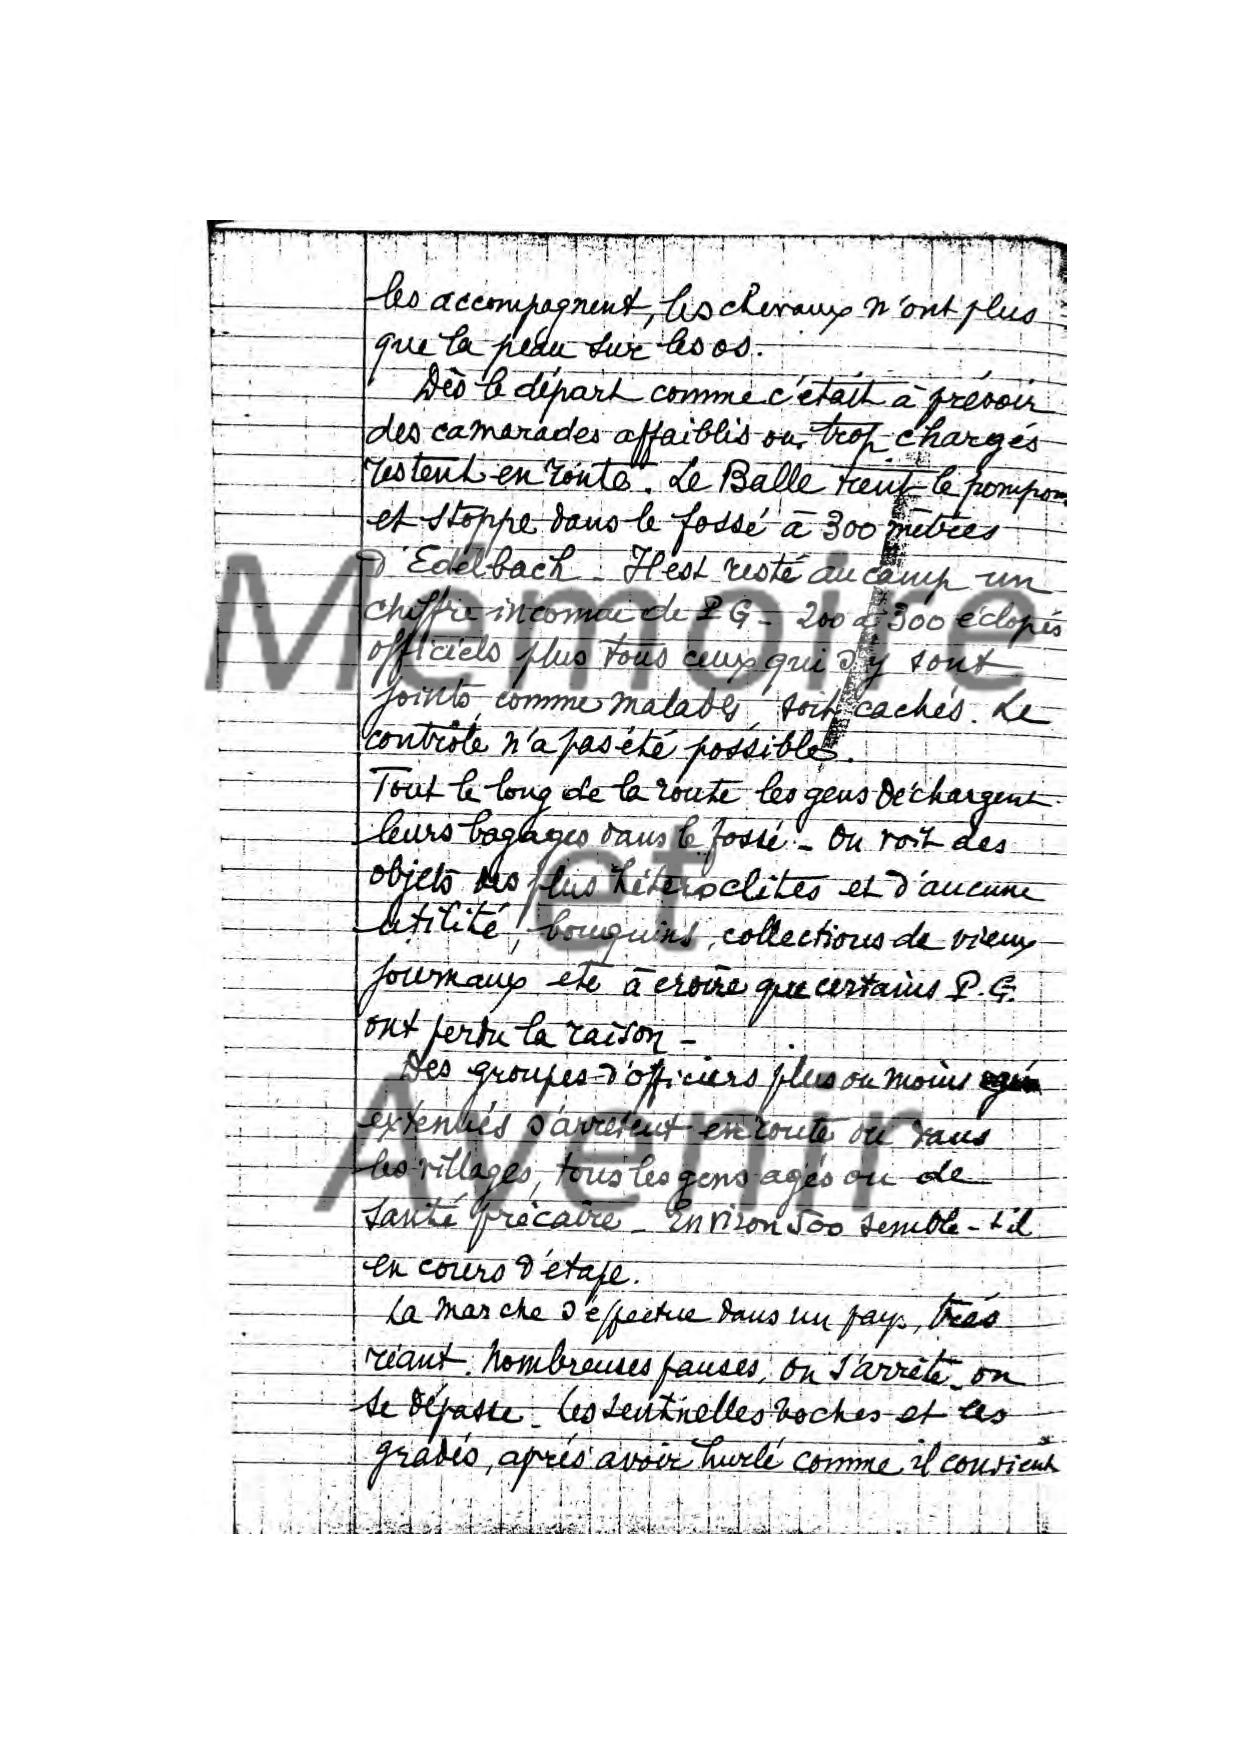 les accompagnent, les chevaux n'ont plus
que la peau sur les os.
Dès le départ comme c'était à prévoir
des camarades affaiblis ou trop chargés
restent en route. Le Balle tient le pompon
et stoppe dans le fossé à 300 mètres
d'Edelbach - Il est resté au camp un
chiffre inconnu de P G - 200 à 300 éclopés
officiels plus tous ceux qui s'y sont
joints comme malades, soit cachés. Le
contrôle n'a pas été possible.
Tout le long de la route les gens déchargent
leurs bagages dans le fossé - On voit des
objets les plus hétéroclites et d'aucune
utilité, bouquins, collections de vieux
journaux etc à croire que certains P.G.
ont perdu la raison -
Des groupes d'officiers plus ou moins
exténués s'arrêtent en route ou dans
les villages, tous les gens agés ou de
santé précaire - Environ 500 semble-t'il
en cours d'étape.
La marche s'effectue dans un pays, très
riant. Nombreuses pauses, on s'arrête, on
se dépasse - Les sentinelles boches et les
gradés, après avoir hurlé comme il convient
Memoire
et
Avenir